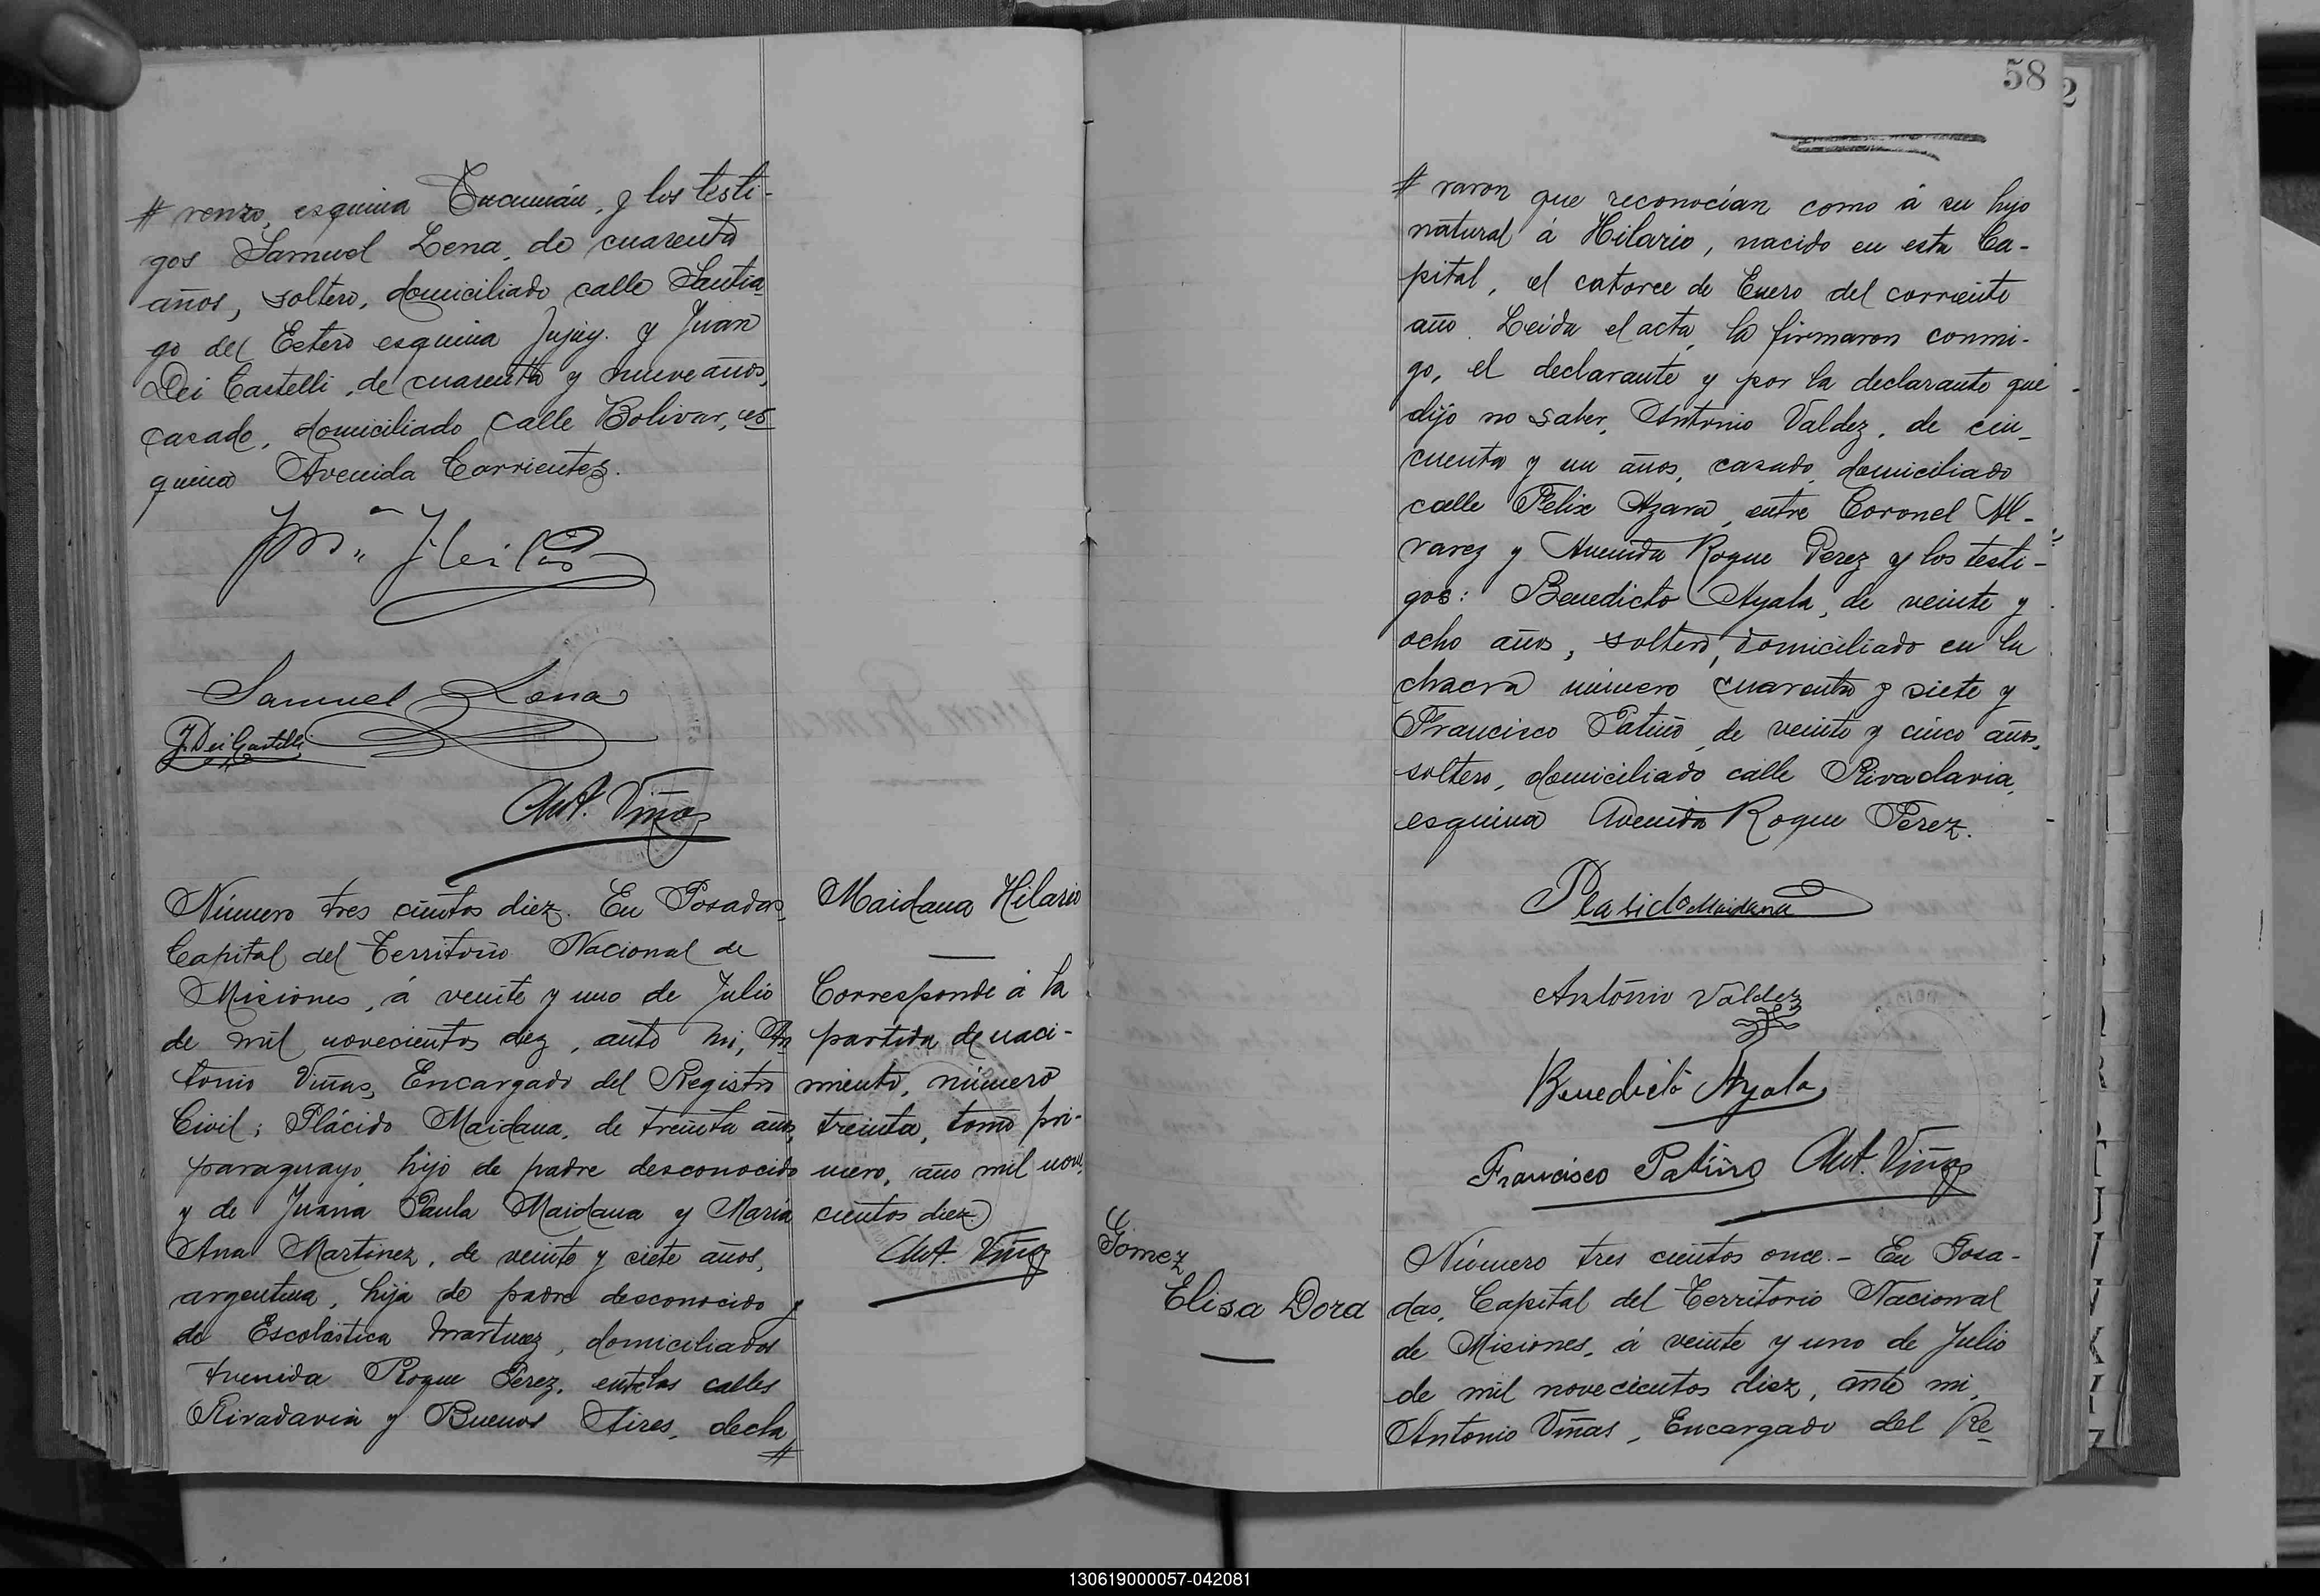 # renzo, esquina Tucumán, y los testi-
gos Samuel Lena, de cuarenta
años, soltero, domiciliado calle Santia
go del Estero esquina Jujuy. y Juan
Dei Castelli, de cuarenta y nueve años,
casado, domiciliado calle Bolivar, es
quina Avenida Corrientes.
Samuel Lena
J. Dei Castelli
Ant. Viñas
Número tres cientos diez. En Posadas,
Capital del Territorio Nacional de
Misiones, á veinte y uno de Julio
de mil novecientos diez, ante mi, An
tonio Viñas, Encargado del Registro
Civil; Plácido Maidana, de treinta años,
paraguayo, hijo de padre desconocido
y de Juana Paula Maidana y María
Ana Martinez, de veinte y siete años,
argentina, hija de padre desconocido y
de Escolástica Martinez, domiciliados
Avenida Roque Perez, entre las calles
Rivadavia y Buenos Aires, decla
#
Maidana Hilario
Corresponde á la
partida de naci-
miento, número
treinta, tomo pri-
mero, año mil nove,
cientos diez.
Ant. Viñas
58
2
# raron que reconocían como á su hijo
natural á Hilario, nacido en esta Ca-
pital, el catorce de Enero del corriente
año. Leida el acta, la firmaron conmi-
go, el declarante y por la declarante que
dijo no saber, Antonio Valdez, de cin-
cuenta y un años, casado, domiciliado
calle Felix Azara, entre Coronel Al-
varez y Avenida Roque Perez y los testi-
gos: Benedicto Ayala, de veinte y
ocho años, soltero, domiciliado en la
chacra número cuarenta y siete y
Francisco Patiño, de veinte y cinco años,
soltero, domiciliado calle Rivadavia,
esquina Avenida Roque Perez.
Plasido Maidana
Antonio Valdez
Benedicto Ayala
Francisco Patiño Ant. Viñas
Gomez
Elisa Dora
Número tres cientos once.- En Posa-
das, Capital del Territorio Nacional
de Misiones, á veinte y uno de Julio
de mil novecientos diez, ante mi,
Antonio Viñas, Encargado del Re-
130619000057-042081